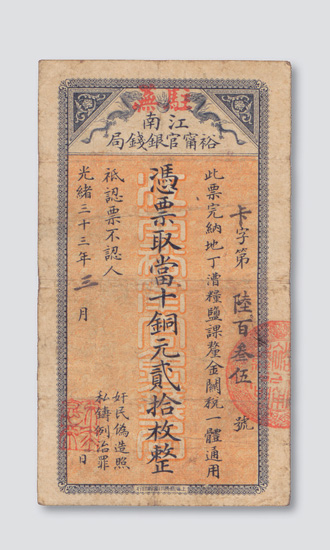 駐蕪
江南
裕甯官銀錢局
卡字第陸百叁伍號
此票完納地丁漕糧鹽課釐金關税一體通用
憑票取當十銅元貳拾枚整
祇認票不認人
光緒三十三年三月日
奸民偽造照
私鑄例治罪